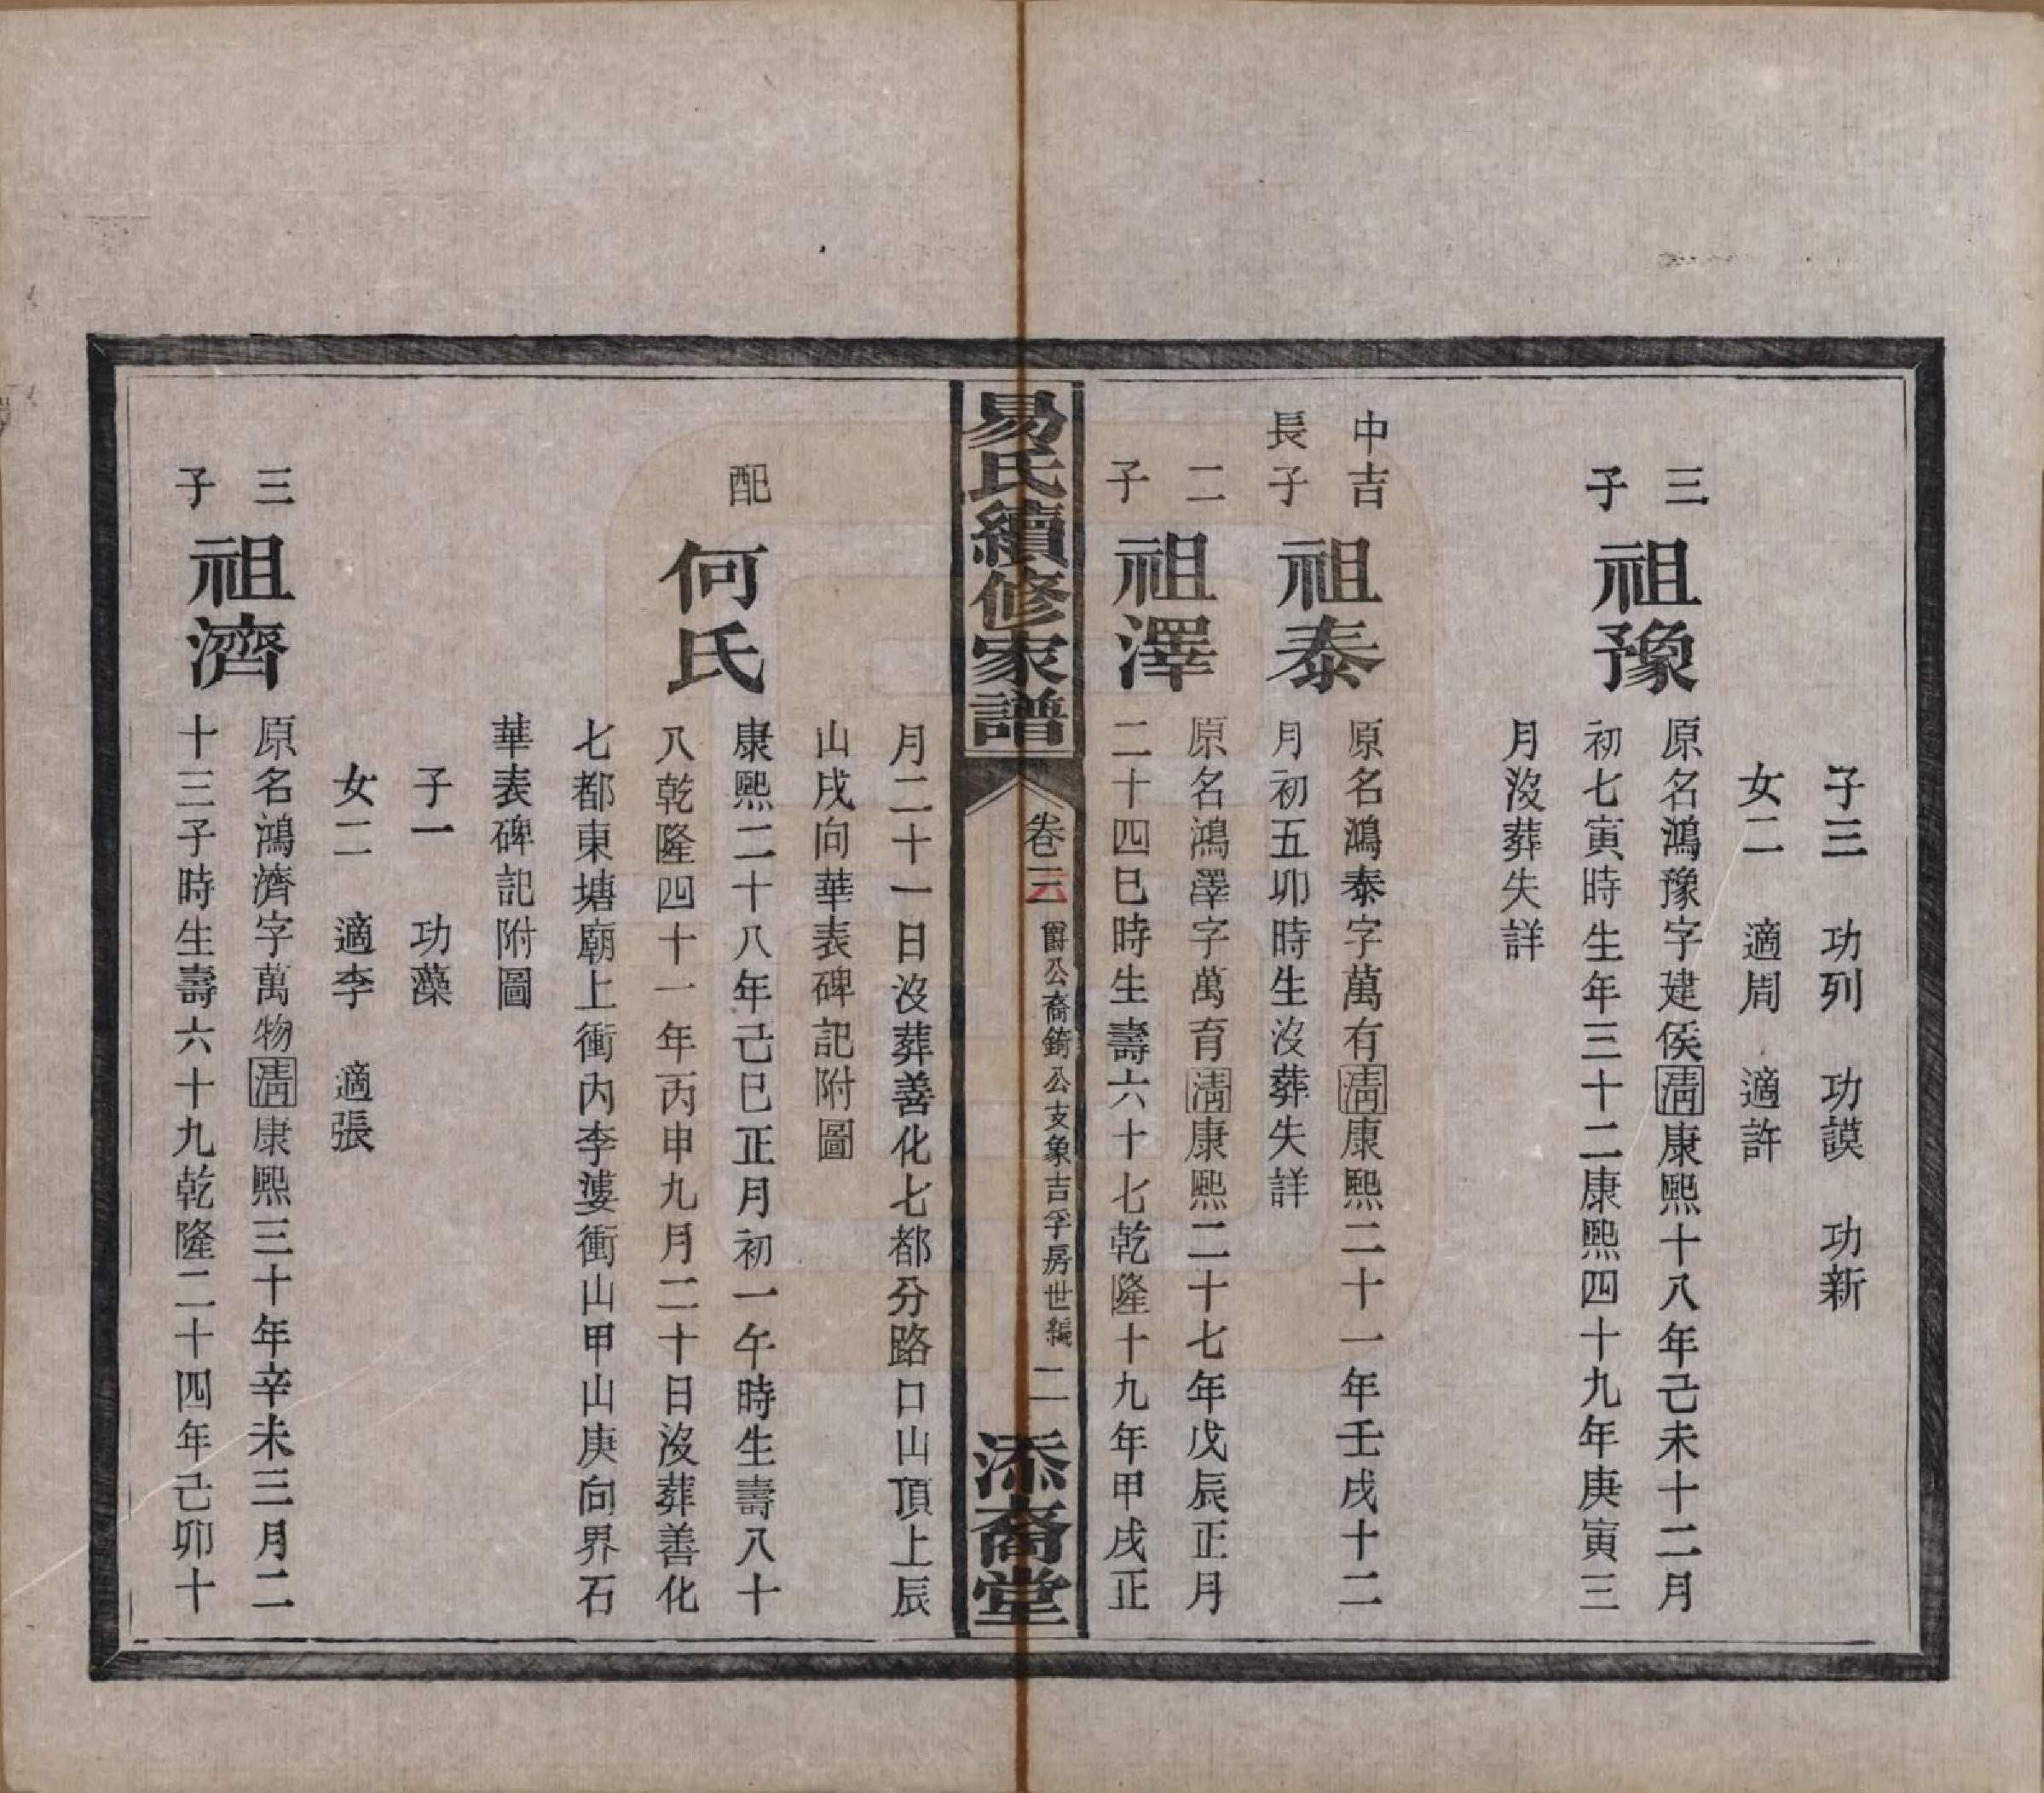 子三 功列 功謨 功新
女二 適周 適許
三子 祖豫 原名鴻豫字建侯清康熙十八年己未十二月
初七寅時生年三十二康熙四十九年庚寅三
月沒葬失詳
中吉長子 祖泰 原名鴻泰字萬有清康熙二十一年壬戌十二
月初五卯時生沒葬失詳
二子 祖澤 原名鴻澤字萬育清康熙二十七年戊辰正月
二十四巳時生壽六十七乾隆十九年甲戌正
易氏續修家譜 卷三 爵公裔錡公支象吉孚房世編 二 添裔堂
月二十一日沒葬善化七都分路口山頂上辰
山戌向華表碑記附圖
配 何氏 康熙二十八年己巳正月初一午時生壽八十
八乾隆四十一年丙申九月二十日沒葬善化
七都東塘廟上衝內李婆衝山甲山庚向界石
華表碑記附圖
子一 功藻
女二 適李 適張
三子 祖濟 原名鴻濟字萬物清康熙三十年辛未三月二
十三子時生壽六十九乾隆二十四年己卯十